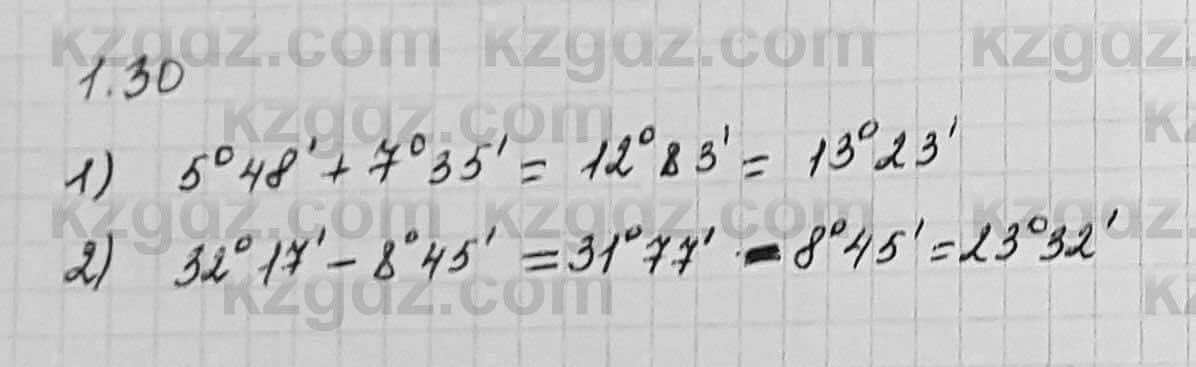 kzgdz.com kzgdz.com kzgdz.com
1.30
kzgdz.com
1) 5°48' + 7°35' = 12°83' = 13°23'
kzgdz.com kzgdz.com kzgdz.com
2) 32°17' - 8°45' = 31°77' - 8°45' = 23°32'
kzgdz.com